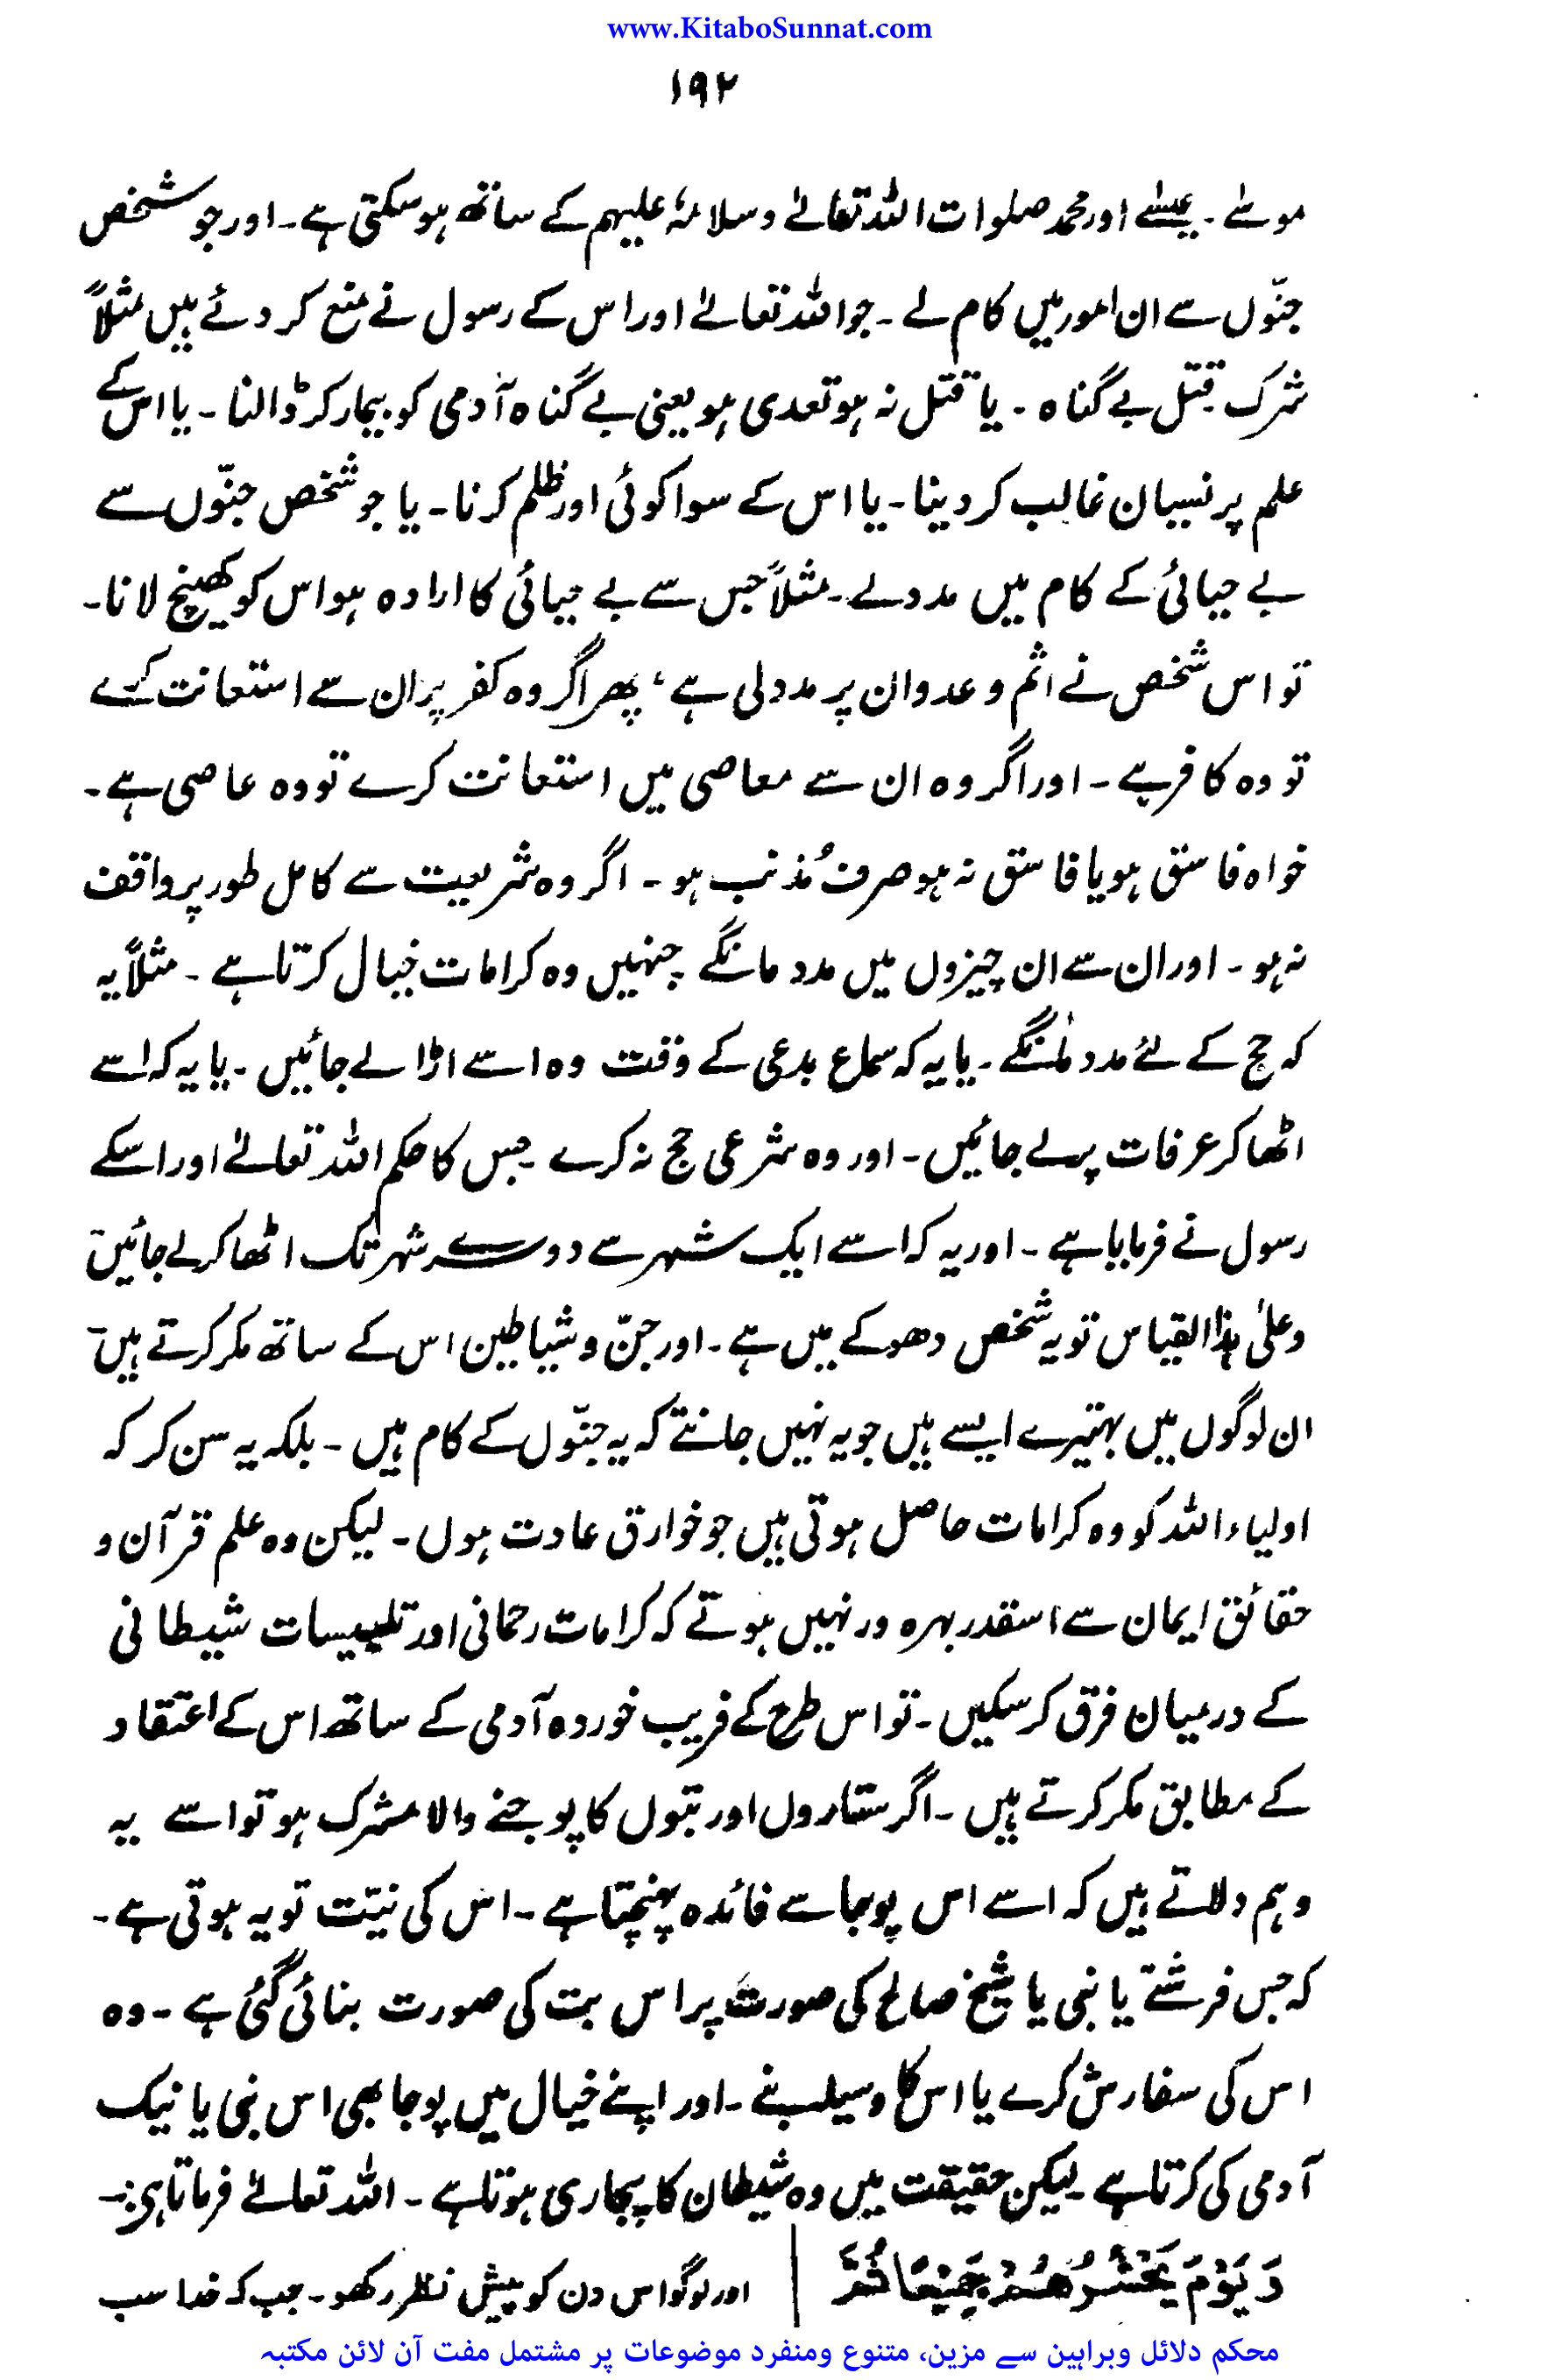 www.KitaboSunnat.com
۱۹۲
موسےٰ ۔ عیسےٰ اور محمد صلوات اللہ تعالےٰ و سلامہٗ علیہم کے ساتھ ہوسکتی ہے۔ اور جو شخص
جنّوں سے ان امور میں کام لے ۔ جو اللہ تعالےٰ اور اس کے رسول نے منع کر دئے ہیں مثلاً
شرک قتل بے گناہ ۔ یا قتل نہ ہو تعدی ہو یعنی بے گناہ آدمی کو بیمار کر ڈالنا ۔ یا اس کے
علم پر نسیان غالب کر دینا ۔ یا اس کے سوا کوئی اور ظلم کرنا ۔ یا جو شخص جنّوں سے
بے حیائی کے کام میں مدد لے ۔ مثلاً جس سے بے حیائی کا ارادہ ہو اس کو کھینچ لانا۔
تو اس شخص نے اثم و عدوان پر مدد لی ہے، پھر اگر وہ کفر پر ان سے استعانت کرے
تو وہ کافر ہے ۔ اور اگر وہ ان سے معاصی میں استعانت کرے تو وہ عاصی ہے ۔
خواہ فاسق ہو یا فاسق نہ ہو صرف مُذنب ہو ۔ اگر وہ شریعت سے کامل طور پر واقف
نہ ہو ۔ اور ان سے ان چیزوں میں مدد مانگے جنہیں وہ کرامات خیال کرتا ہے ۔ مثلاً یہ
کہ حج کے لئے مدد مانگے ۔ یا یہ کہ سماع بدعی کے وقت وہ اسے اڑا لے جائیں ۔ یا یہ کہ اسے
اٹھا کر عرفات پر لے جائیں ۔ اور وہ شرعی حج نہ کرے جس کا حکم اللہ تعالےٰ اور اسکے
رسول نے فرمایا ہے ۔ اور یہ کہ اسے ایک شہر سے دوسرے شہر تک اٹھا کر لے جائیں ۔
وعلیٰ ہذا القیاس تو یہ شخص دھوکے میں ہے ۔ اور جنّ و شیاطین اس کے ساتھ مکر کرتے ہیں ۔
ان لوگوں میں بہتیرے ایسے ہیں جو یہ نہیں جانتے کہ یہ جنّوں کے کام ہیں ۔ بلکہ یہ سن کر کہ
اولیاء اللہ کو وہ کرامات حاصل ہوتی ہیں جو خوارق عادت ہوں ۔ لیکن وہ علم قرآن و
حقائق ایمان سے اسقدر بہرہ ور نہیں ہوتے کہ کرامات رحمانی اور تلبیسات شیطانی
کے درمیان فرق کر سکیں ۔ تو اس طرح کے فریب خوردہ آدمی کے ساتھ اس کے اعتقاد
کے مطابق مکر کرتے ہیں ۔ اگر ستاروں اور بتوں کا پوجنے والا مشرک ہو تو اسے یہ
وہم دلاتے ہیں کہ اسے اس پوجا سے فائدہ پہنچتا ہے ۔ اس کی نیّت تو یہ ہوتی ہے ۔
کہ جس فرشتے یا نبی یا شیخ صالح کی صورت پر اس بت کی صورت بنائی گئی ہے ۔ وہ
اس کی سفارش کرے یا اس کا وسیلہ بنے ۔ اور اپنے خیال میں پوجا بھی اس نبی یا نیک
آدمی کی کرتا ہے ۔ لیکن حقیقت میں وہ شیطان کا پجاری ہوتا ہے ۔ اللہ تعالےٰ فرماتا ہی :۔
وَ يَوْمَ يَحْشُرُهُمْ جَمِيْعًا ثُمَّ | اور لوگو اس دن کو پیش نظر رکھو ۔ جب کہ خدا سب
محکم دلائل وبراہین سے مزین، متنوع ومنفرد موضوعات پر مشتمل مفت آن لائن مکتبہ